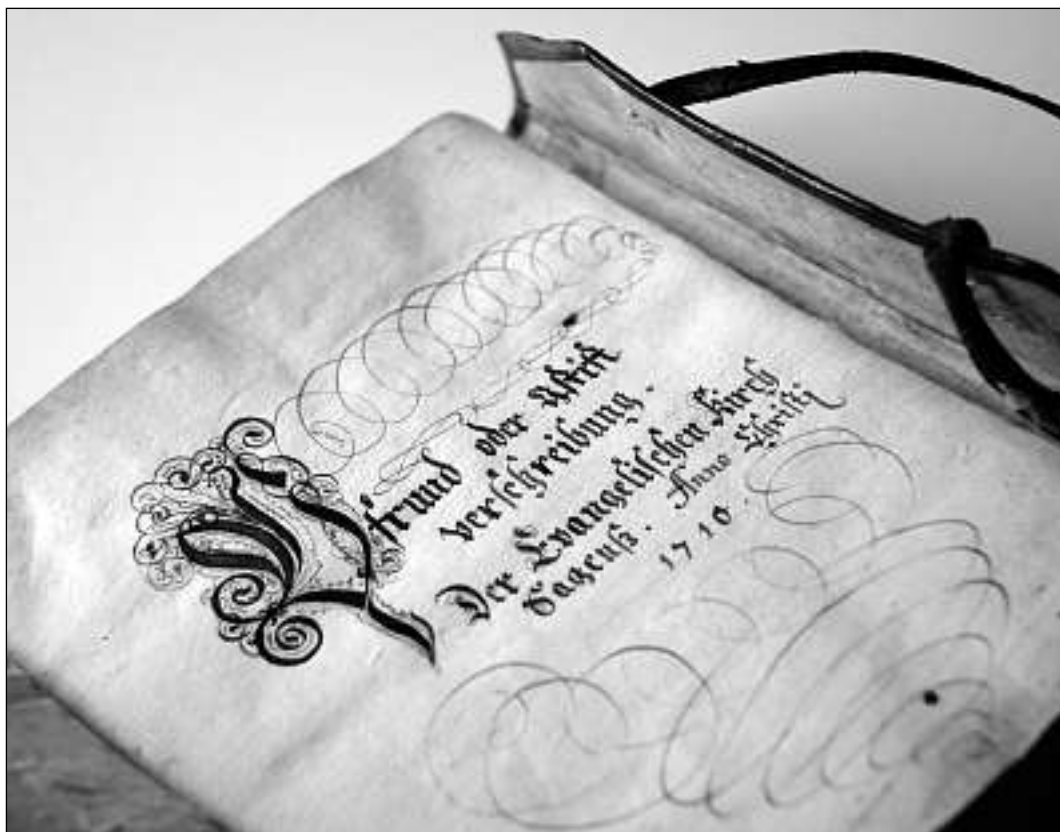 Pfrund oder
verschreibung.
Der Evangelischen Kirch
Sagenß. Anno Christi
1710.